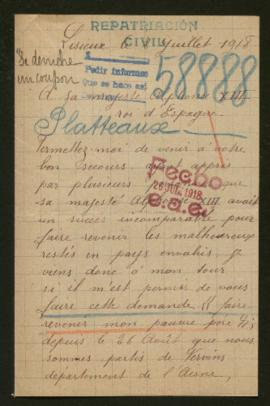 REPATRIACIÓN
CIVIL
Lisieux 6 Juillet 1918
Se derniche
un coupon
Pedir informes
Que se hace así
58888
A sa majesté Alphonse XIII
roi d'Espagne
Platteaux
Permettez-moi de venir à votre
bon secours ayant appris
par plusieurs que
sa majesté XIII avait
Fecho
26 JUL. 1918
un succès incomparable pour
faire revenir les malheureux
restés en pays envahis. Je
viens donc à mon tour
si il m'est permis de vous
faire cette demande faire
revenir mon pauvre père
depuis le 26 Août que nous
sommes partis de Vervins
département de l'Aisne,